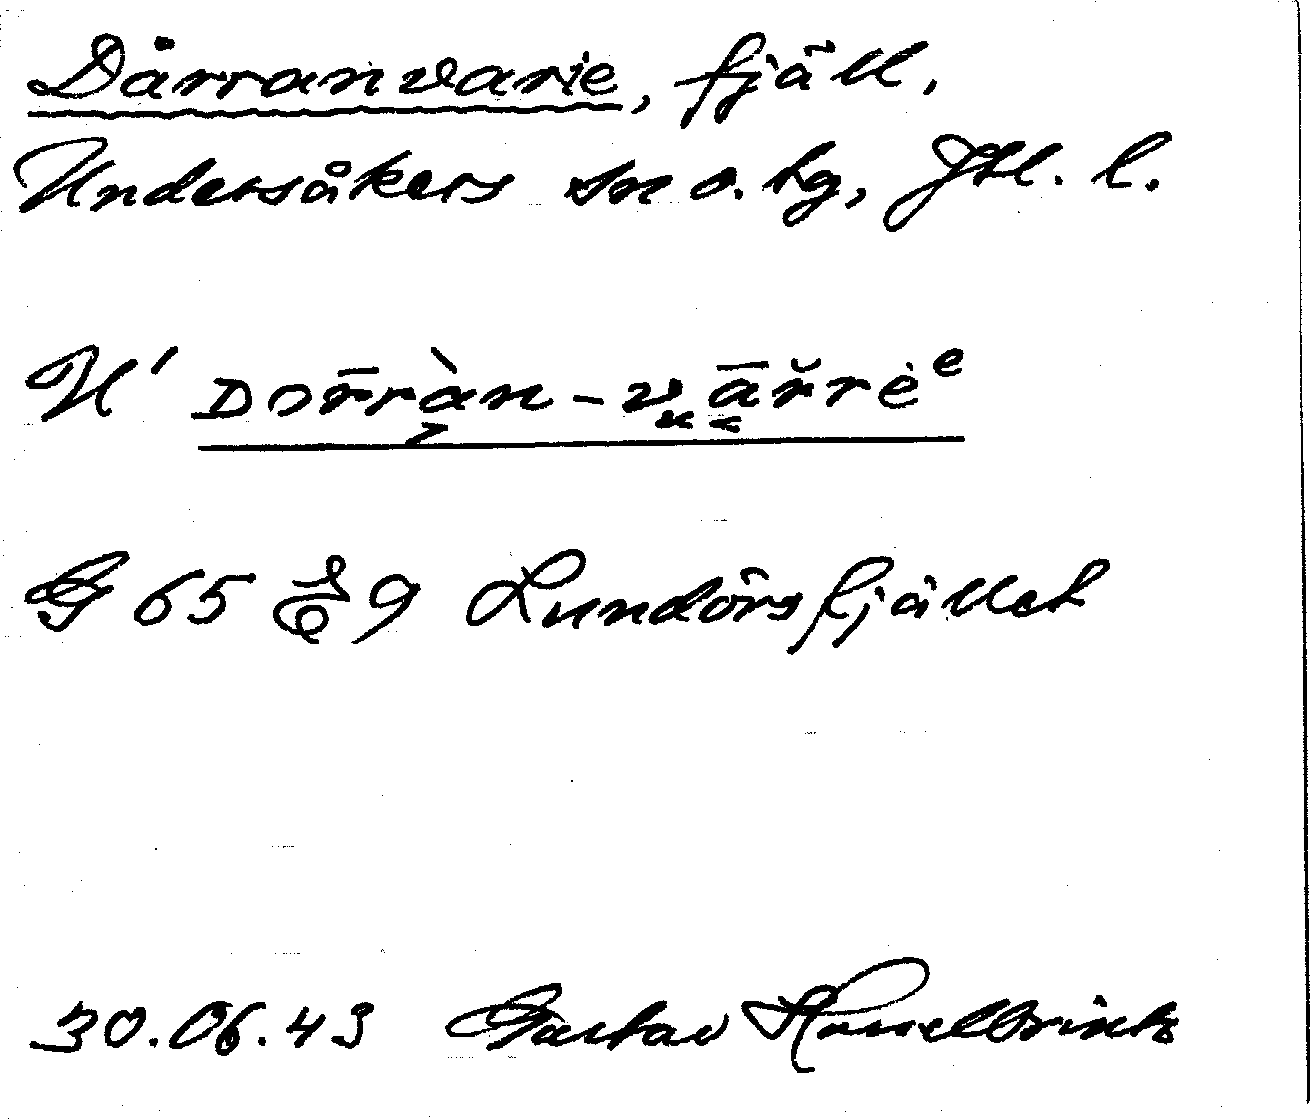 Dårranvarie, fjäll,
Undersåkers sn o. hg, Jtl. l.
U' Dorr̄àn-vārřėᵉ
G 65 Ö 9 Lundörsfjället
30.06.43 Gustav Hasselbrink